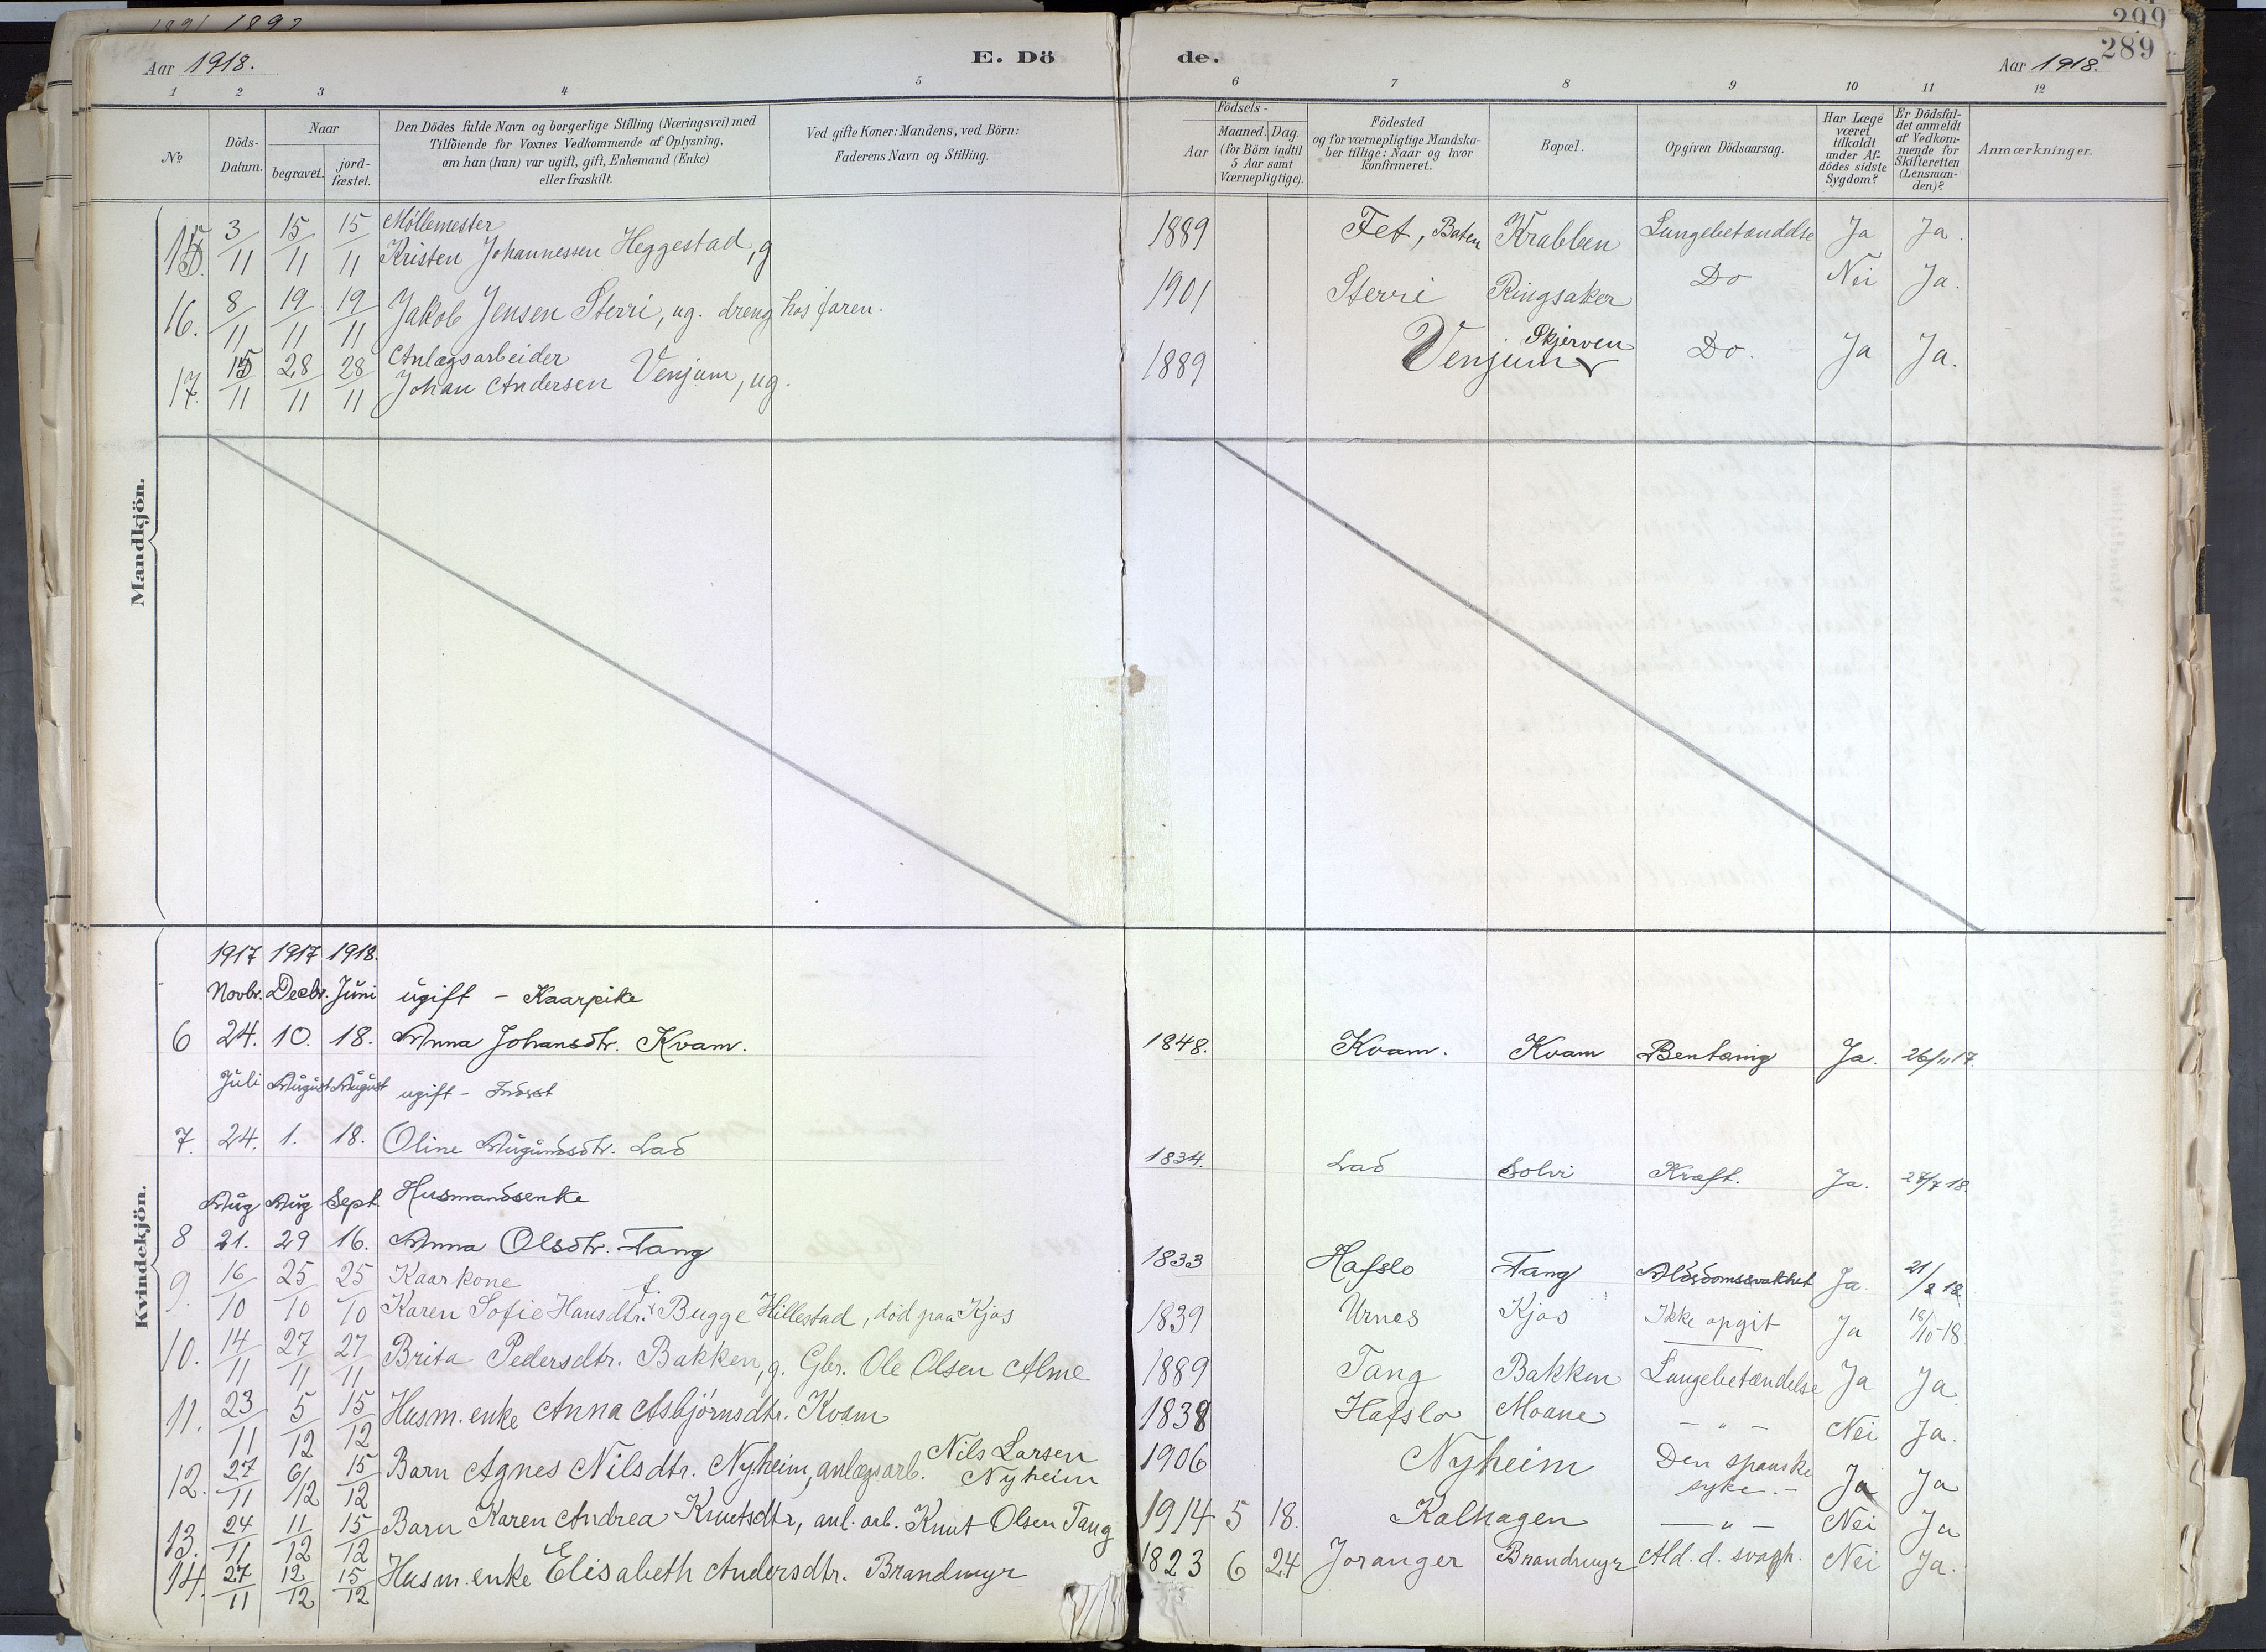 1891 1892
299
289
Aar 1918.
E. Dö
de.
Aar 1918.
1 2 3 4 5 6 7 8 9 10 11 12
No
Döds-
Datum.
Naar
begravet.
jord-
fæstet.
Den Dödes fulde Navn og borgerlige Stilling (Næringsvei) med
Tilföiende for Voxnes Vedkommende af Oplysning,
om han (hun) var ugift, gift, Enkemand (Enke)
eller fraskilt.
Ved gifte Koner: Mandens, ved Börn:
Faderens Navn og Stilling.
Födsels-
Aar
Maaned. Dag.
(for Börn indtil
5 Aar samt
Værnepligtige).
Födested
og for værnepligtige Mandska-
ber tillige: Naar og hvor
konfirmeret.
Bopæl.
Opgiven Dödsaarsag.
Har Læge
været
tilkaldt
under Af-
dödes sidste
Sygdom?
Er Dödsfal-
det anmeldt
af Vedkom-
mende for
Skifteretten
(Lensman-
den)?
Anmærkninger.
Mandkjön.
15. 3/11 15/11 15/11 Møllemester
Kristen Johannessen Heggestad, g 1889 Fet, Baten Krabben Lungebetændelse Ja Ja.
16. 8/11 19/11 19/11 Jakob Jensen Sterri, ug. dreng hos faren. 1901 Sterri Ringsaker Do Nei Ja.
17. 15/11 28/11 28/11 Anlægsarbeider
Johan Andersen Venjum, ug. 1889 Venjum Skjerven Do. Ja Ja.
Kvindekjön.
1917 1917 1918.
Novbr. Decbr. Juni ugift - Kaarpike
6 24. 10. 18. Anna Johansdtr. Kvam. 1848. Kvam. Kvam Bentæring Ja. 26/11 17.
Juli August August ugift -
7. 24. 1. 18. Oline Augundsdtr. Lad 1834. Lad Solvi Kræft. Ja. 27/7 18.
Aug Aug Sept Husmandsenke
8 21. 29 16. Anna Olsdtr. Tang 1833 Hafslo Tang Alderdomssvakhet Ja. 21/8 18
9. 16/10 25/10 25/10 Kaarkone
Karen Sofie Hansdtr. f. Bugge Hillestad, död paa Kjos 1839 Urnes Kjos Ikke opgit Ja 18/10-18
10. 14/11 27/11 27/11 Brita Pedersdtr. Bakken, g. Gbr. Ole Olsen Alme 1889 Tang Bakken Lungebetændelse Ja Ja
11. 23/11 5/12 15/12 Husm. enke Anna Asbjørnsdtr. Kvam 1838 Hafslo Moane - " - Nei Ja.
12. 27/11 6/12 15/12 Barn Agnes Nilsdtr. Nyheim, anlægsarb. Nils Larsen
Nyheim 1906 Nyheim Den spanske
syke. - Ja Ja
13. 24/11 11/12 15/12 Barn Karen Andrea Knutsdtr, anl. arb. Knut Olsen Tang 1914 5 18. Kalhagen - " - Nei Ja
14. 27/11 12/12 15/12 Husm. enke Elisabeth Andersdtr. Brandmyr 1823 6 24 Joranger Brandmyr Ald. d. svagh. Nei Ja.